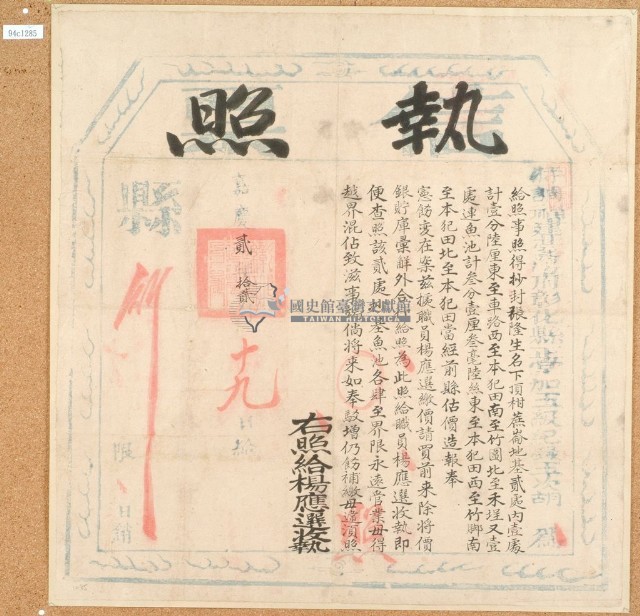 94c1285
執照
彰化縣
胡
給照事照得抄封張隆生名下頂柑蔗崙地基貳處內壹處
計壹分陸厘東至車路西至本犯田南至竹圍北至禾埕又壹
處連魚池計叁分壹厘叁毫陸絲東至本犯田西至竹腳南
至本犯田北至本犯田當經前縣估價造報奉
憲飭变在案茲據職員楊應選繳價請買前来除將價
銀貯庫彙詳外合給照為此照給職員楊應選收執即
便查照該貳處地基魚池各肆至界限永遠管業毋得
越界混佔致滋事端倘将来如奉駁增仍飭補繳毋違須照
右照給楊應選收執
嘉慶貳拾貳
十九
日給
限 日繳
國史館臺灣文獻館
TAIWAN HISTORICA